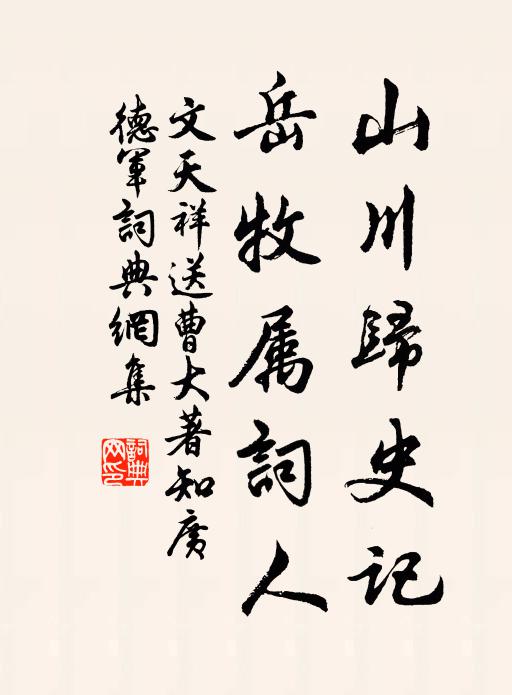 山川歸史記
岳牧属詞人
文天祥送曹大著知廣
德軍詞典網集
詞典
网印